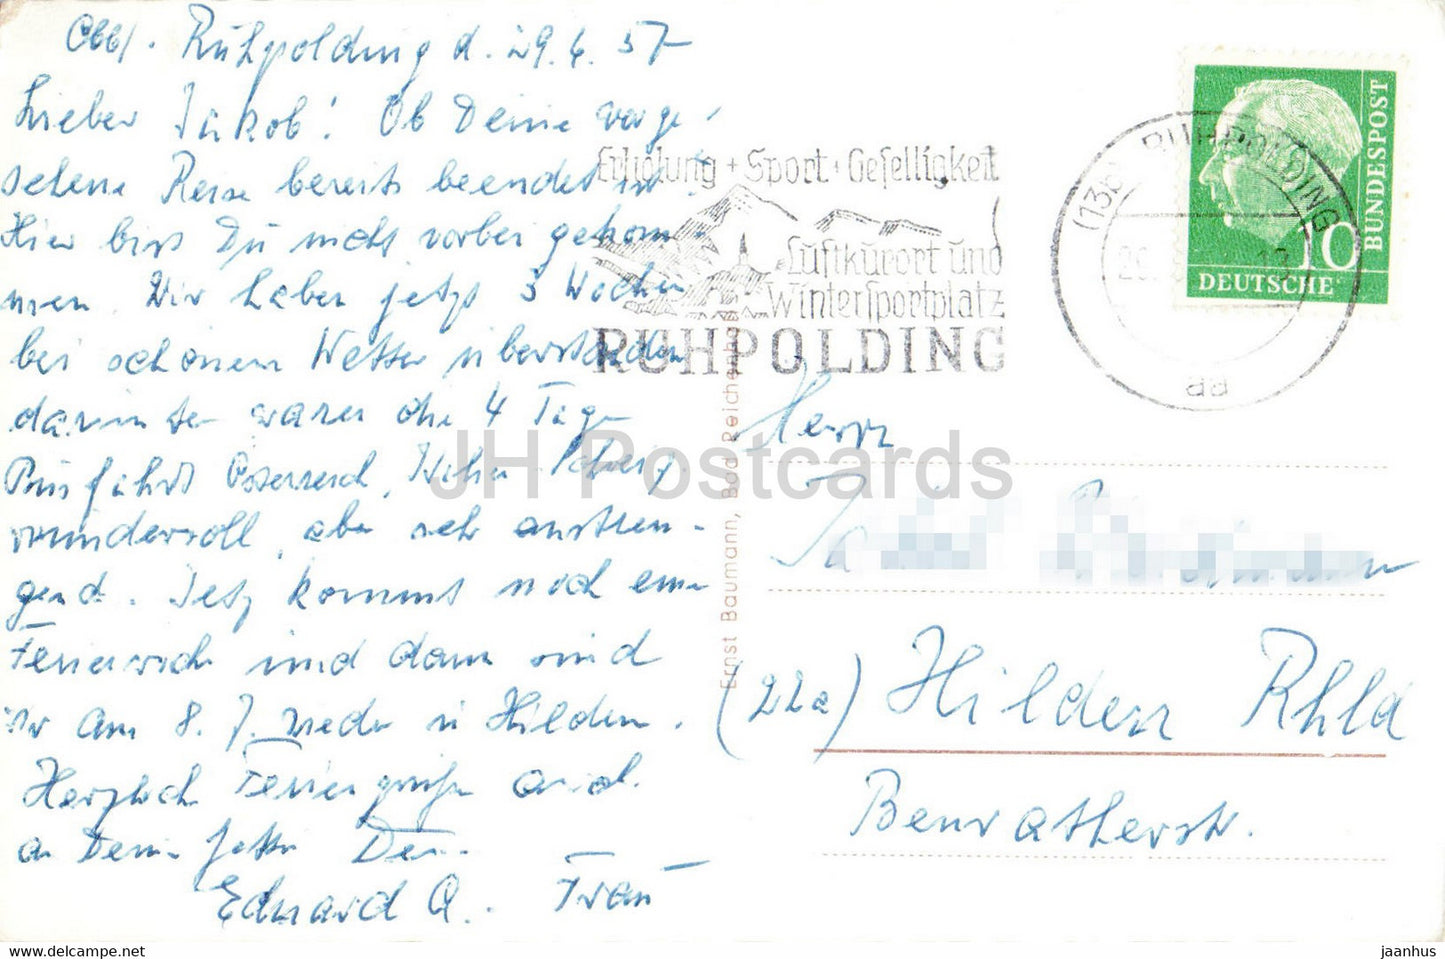 Obb. Ruhpolding d. 29.6.57
Lieber Jakob! Ob Deine vorge-
sehene Reise bereits beendet ist.
Hier bist Du nicht vorbei gekom-
men. Wir haben jetzt 3 Wochen
bei schönem Wetter überstanden
darunter waren die 4 Tage
Österreich,
wundervoll, aber sehr anstren-
gend. Jetzt kommt noch eine
Ferienwoche und dann sind
wir am 8. 7. wieder in Hilden.
Herzliche Feriengrüße auch
a Deine Dein
Eduard u. Frau
Erholung + Sport + Geselligkeit
Luftkurort und
Wintersportplatz
RUHPOLDING
(13b) RUHPOLDING
aa
10
DEUTSCHE
BUNDESPOST
Ernst Baumann, Bad Reichenhall
Herrn
(22a) Hilden Rhld
Benratherstr.
JH Postcards
https://www.delcampe.net
jaanhus